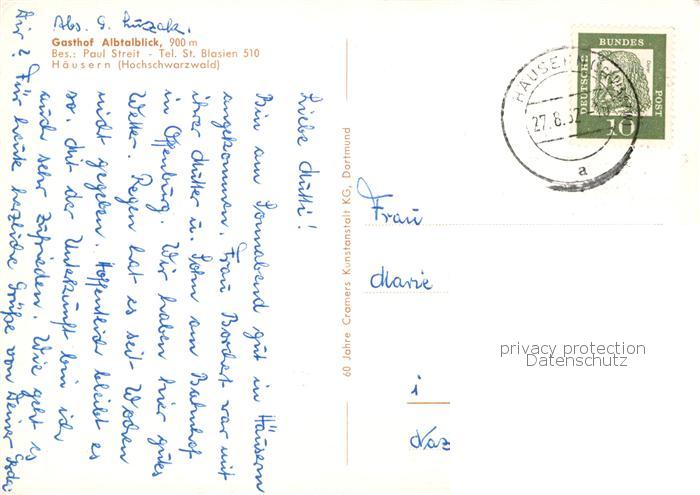 Abs. G. Luzak.
Gasthof Albtalblick, 900 m
Bes.: Paul Streit - Tel. St. Blasien 510
Häusern (Hochschwarzwald)
Liebe Mutti!
Bin am Sonnabend gut in Häusern
angekommen. Frau Borchert war mit
ihrer Mutter u. Sohn am Bahnhof
in Offenburg. Wir haben hier gutes
Wetter. Regen hat es seit Wochen
nicht gegeben. Hoffentlich bleibt es
so. Mit der Unterkunft bin ich
auch sehr zufrieden. Wie geht es
Dir? Für heute herzliche Grüße von Deiner
60 Jahre Cramers Kunstanstalt KG, Dortmund
DEUTSCHE
BUNDES
POST
10
HÄUSERN
27.8.62
a
Frau
Marie
i
privacy protection
Datenschutz